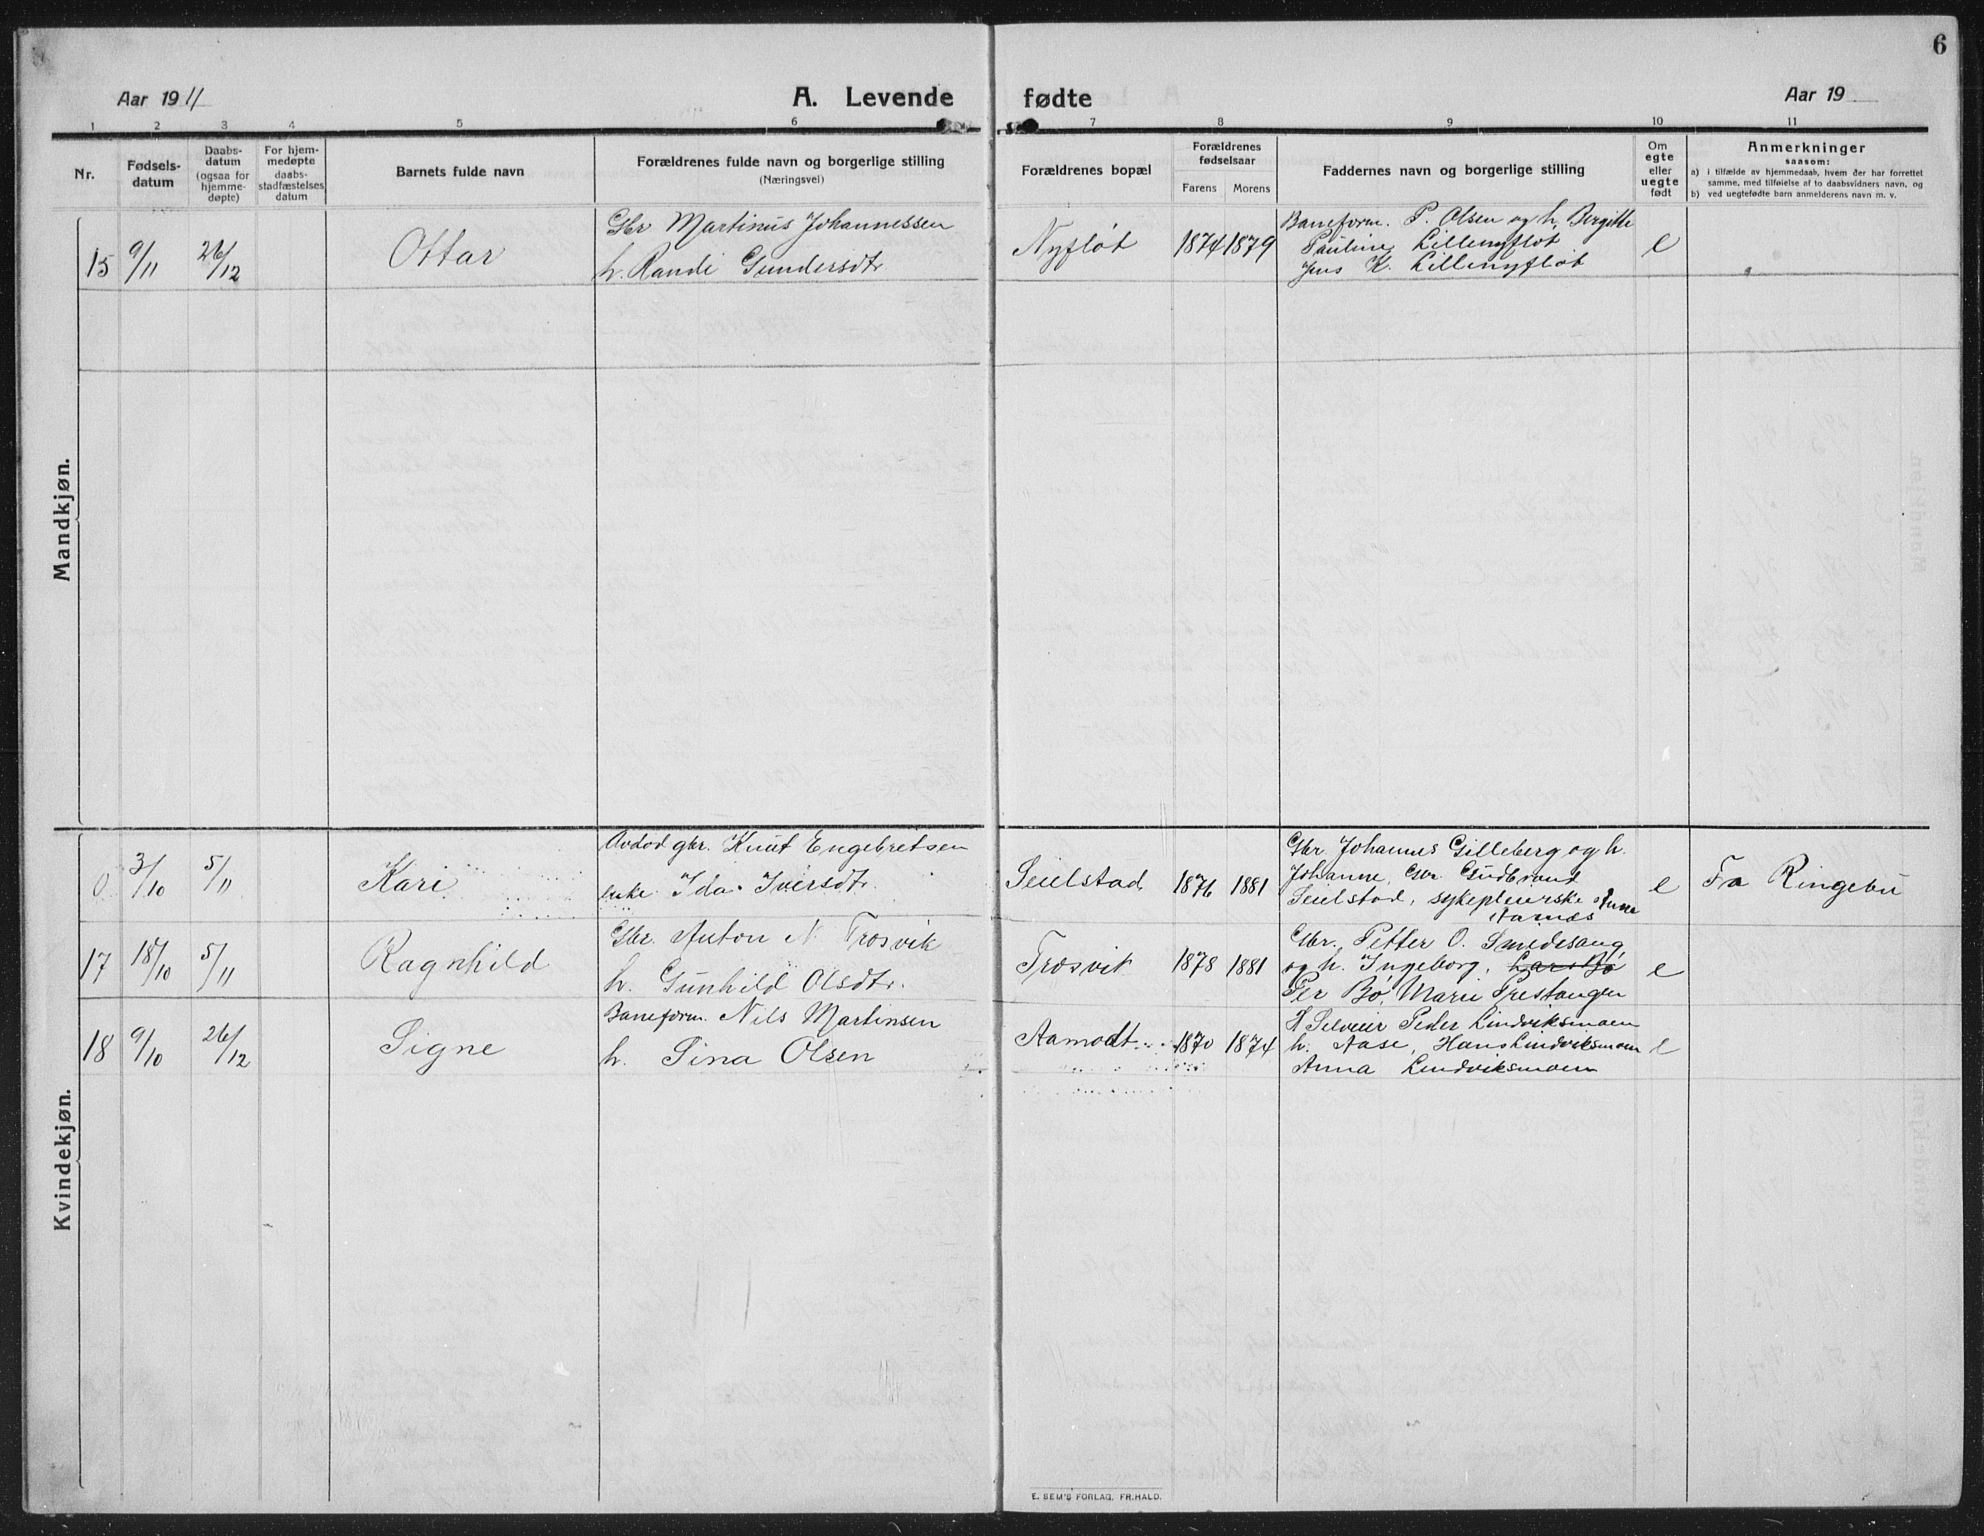 6
Aar 1911
A. Levende fødte
Aar 19
1 2 3 4 5 6 7 8 9 10 11
Nr.
Fødsels-
datum
Daabs-
datum
(ogsaa for
hjemme-
døpte)
For hjem-
medøpte
daabs-
stadfæstelses
datum
Barnets fulde navn
Forældrenes fulde navn og borgerlige stilling
(Næringsvei)
Forældrenes bopæl
Forældrenes
fødselsaar
Farens Morens
Faddernes navn og borgerlige stilling
Om
egte
eller
uegte
født
Anmerkninger
saasom:
a) i tilfælde av hjemmedaab, hvem der har forrettet
samme, med tilføielse af to daabsvidners navn, og
b) ved uegtefødte barn anmelderens navn m. v.
Mandkjøn.
15 9/11 26/12 Ottar
Gbr Martinus Johannessen
h. Randi Gundersdtr
Nyfløt 1874 1879
Baneform. P. Olsen og h. Bergitte
Pauline Lillenyfløt
Jens K. Lillenyfløt
e
Kvindekjøn.
0 3/10 5/11 Kari
Avdød gbr. Knut Engebretsen
enke Ida Iversdtr.
Seielstad 1876 1881
Gbr. Johannes Gilleberg og h.
Johanne, Gbr. Gudbrand
Seielstad, sykepleierske Anna
e Fra Ringebu
17 18/10 5/11 Ragnhild
Gbr. Anton N. Trosvik
h. Gunhild Olsdtr.
Trosvik 1878 1881
Gbr. Petter O. Smedesang
og h. Ingeborg, Lars Bø
Per Bø, Marie Prestangen
e
18 9/10 26/12 Signe
Baneform. Nils Martinsen
h. Sina Olsen
Aamodt 1870 1874
Peder Lindviksmoen
h. Aase, Hans Lindviksmoen
Anna Lindviksmoen
e
E. SEM'S FORLAG, FR.HALD.